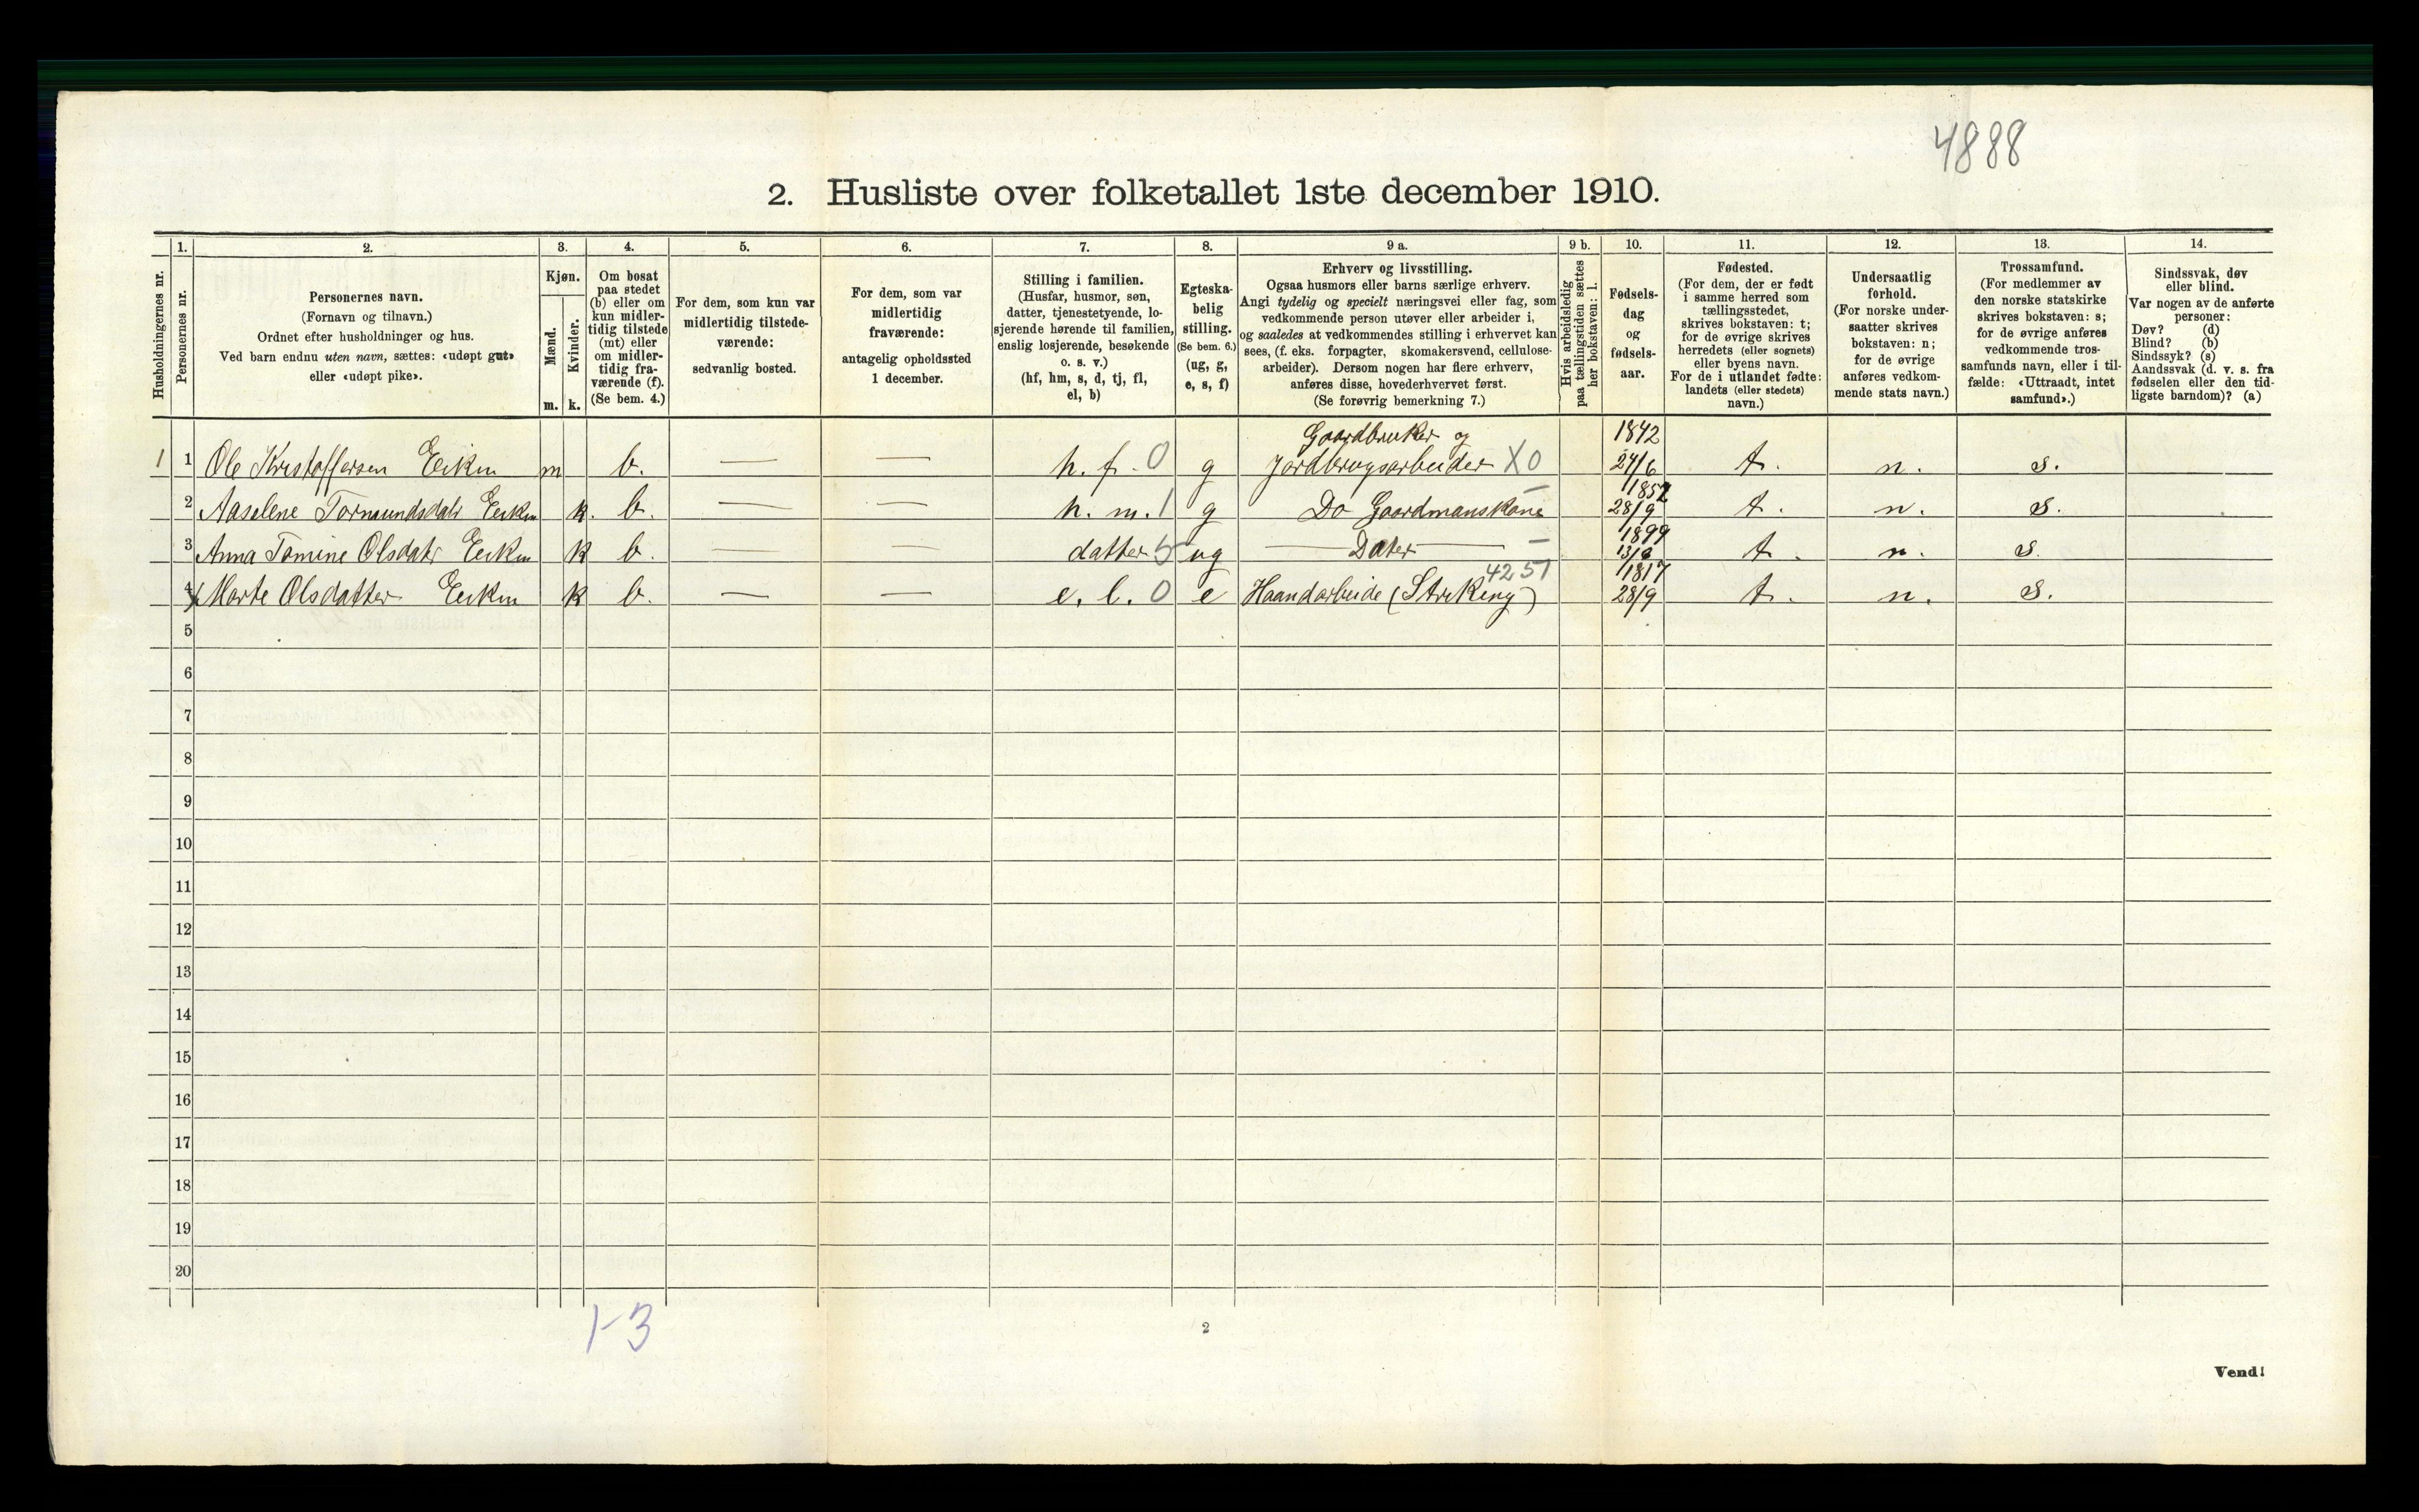 4888
2. Husliste over folketallet 1ste december 1910.
1. 2. 3. 4. 5. 6. 7. 8. 9 a. 9 b. 10. 11. 12. 13. 14.
Husholdningernes nr.
Personernes nr.
Personernes navn.
(Fornavn og tilnavn.)
Ordnet efter husholdninger og hus.
Ved barn endnu uten navn, sættes: «udøpt gut»
eller «udøpt pike».
Kjøn.
Mænd.
Kvinder.
m. k.
Om bosat
paa stedet
(b) eller om
kun midler-
tidig tilstede
(mt) eller
om midler-
tidig fra-
værende (f).
(Se bem. 4.)
For dem, som kun var
midlertidig tilstede-
værende:
sedvanlig bosted.
For dem, som var
midlertidig
fraværende:
antagelig opholdssted
1 december.
Stilling i familien.
(Husfar, husmor, søn,
datter, tjenestetyende, lo-
sjerende hørende til familien,
enslig losjerende, besøkende
o. s. v.)
(hf, hm, s, d, tj, fl,
el, b)
Egteska-
belig
stilling.
(Se bem. 6.)
(ug, g,
e, s, f)
Erhverv og livsstilling.
Ogsaa husmors eller barns særlige erhverv.
Angi tydelig og specielt næringsvei eller fag, som
vedkommende person utøver eller arbeider i,
og saaledes at vedkommendes stilling i erhvervet kan
sees, (f. eks. forpagter, skomakersvend, cellulose-
arbeider). Dersom nogen har flere erhverv,
anføres disse, hovederhvervet først.
(Se forøvrig bemerkning 7.)
Hvis arbeidsledig
paa tællingstiden sættes
her bokstaven: l.
Fødsels-
dag
og
fødsels-
aar.
Fødested.
(For dem, der er født
i samme herred som
tællingsstedet,
skrives bokstaven: t;
for de øvrige skrives
herredets (eller sognets)
eller byens navn.
For de i utlandet fødte:
landets (eller stedets)
navn.)
Undersaatlig
forhold.
(For norske under-
saatter skrives
bokstaven: n;
for de øvrige
anføres vedkom-
mende stats navn.)
Trossamfund.
(For medlemmer av
den norske statskirke
skrives bokstaven: s;
for de øvrige anføres
vedkommende tros-
samfunds navn, eller i til-
fælde: «Uttraadt, intet
samfund».)
Sindssvak, døv
eller blind.
Var nogen av de anførte
personer:
Døv? (d)
Blind? (b)
Sindssyk? (s)
Aandssvak (d. v. s. fra
fødselen eller den tid-
ligste barndom)? (a)
Gaardbruker og 1842
1 1 Ole Kristoffersen Eeiken m b. — — h. f. 0 g Jordbrugsarbeider X0 24/6 t. n. s.
1852
2 Aaselene Tormundsdatr Eeiken k. b. — — h. m. 1 g Do Gaardmanskone — 28/9 t. n. s.
1899
3 Anna Tomine Olsdatr Eeiken k b. — — datter 5 ug Dater — 13/6 t. n. s.
4251 1817
4 Marte Olsdatter Eeiken k b. — — e. l. 0 e Haandarbeide (Strikking) 28/9 t. n. s.
5
6
7
8
9
10
11
12
13
14
15
16
17
18
19
20
1-3
2
Vend!